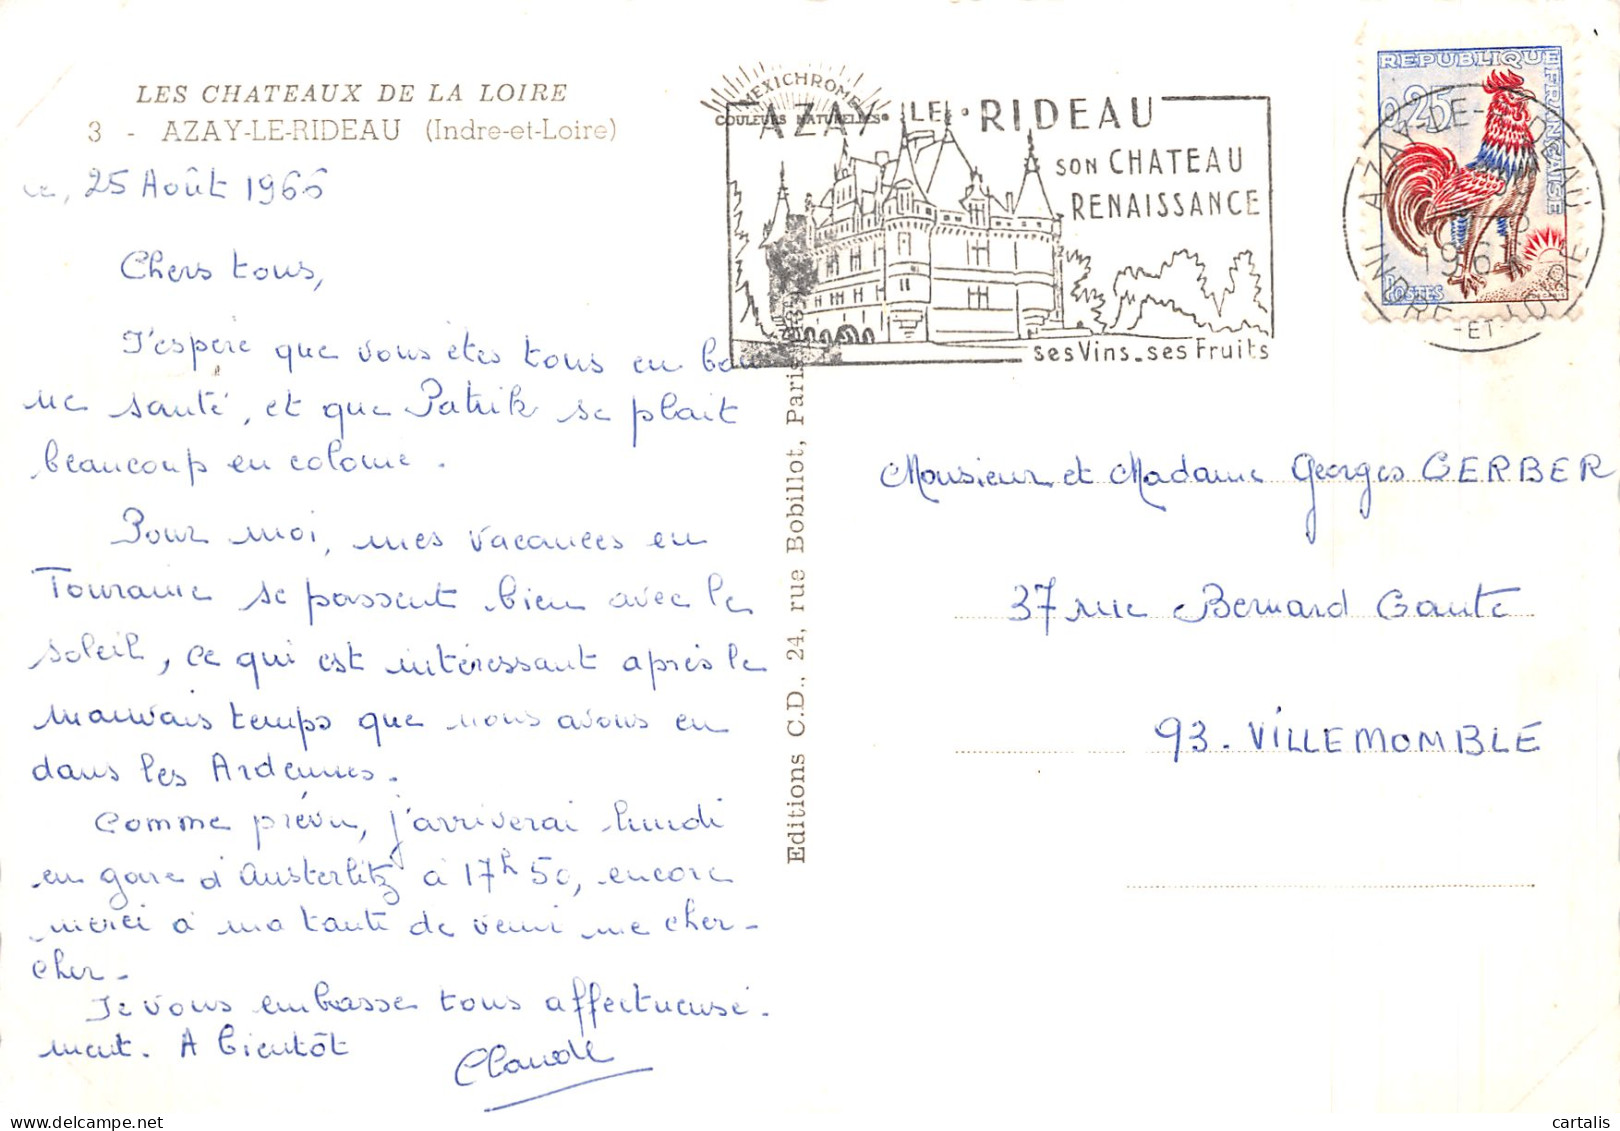 LES CHATEAUX DE LA LOIRE
3 - AZAY-LE-RIDEAU (Indre-et-Loire)
ce, 25 Août 1965
Chers tous,
J'espère que vous êtes tous en bon
ne santé, et que Patrik se plait
beaucoup en colonie.
Pour moi, mes vacances en
Touraine se passent bien avec le
soleil, ce qui est intéressant après le
mauvais temps que nous avons eu
dans les Ardennes.
Comme prévu, j'arriverai lundi
en gare d'Austerlitz à 17h50, encore
merci à ma tante de venir me cher-
cher.
Je vous embrasse tous affectueuse-
ment. A bientôt
Claude
Editions C.D., 24, rue Bobillot, Paris
MEXICHROME
COULEURS NATURELLES
AZAY LE RIDEAU
SON CHATEAU
RENAISSANCE
ses Vins_ses Fruits
REPUBLIQUE FRANÇAISE
0,25
POSTES
AZAY-LE-RIDEAU
INDRE-ET-LOIRE
Monsieur et Madame Georges GERBER
37 rue Bernard Gante
93. VILLEMOMBLE
cartalis